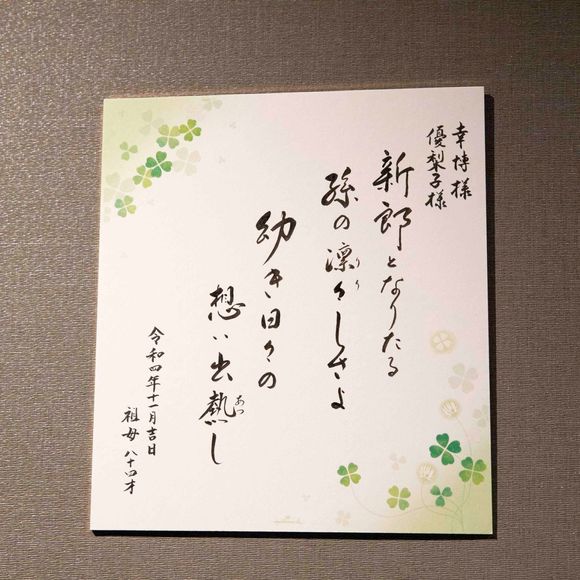 幸博様
優梨子様
新郎となりたる
孫の凛々しさよ
りり
幼き日々の
想い出熱し
あつ
令和四年十一月吉日
祖母 八十四才